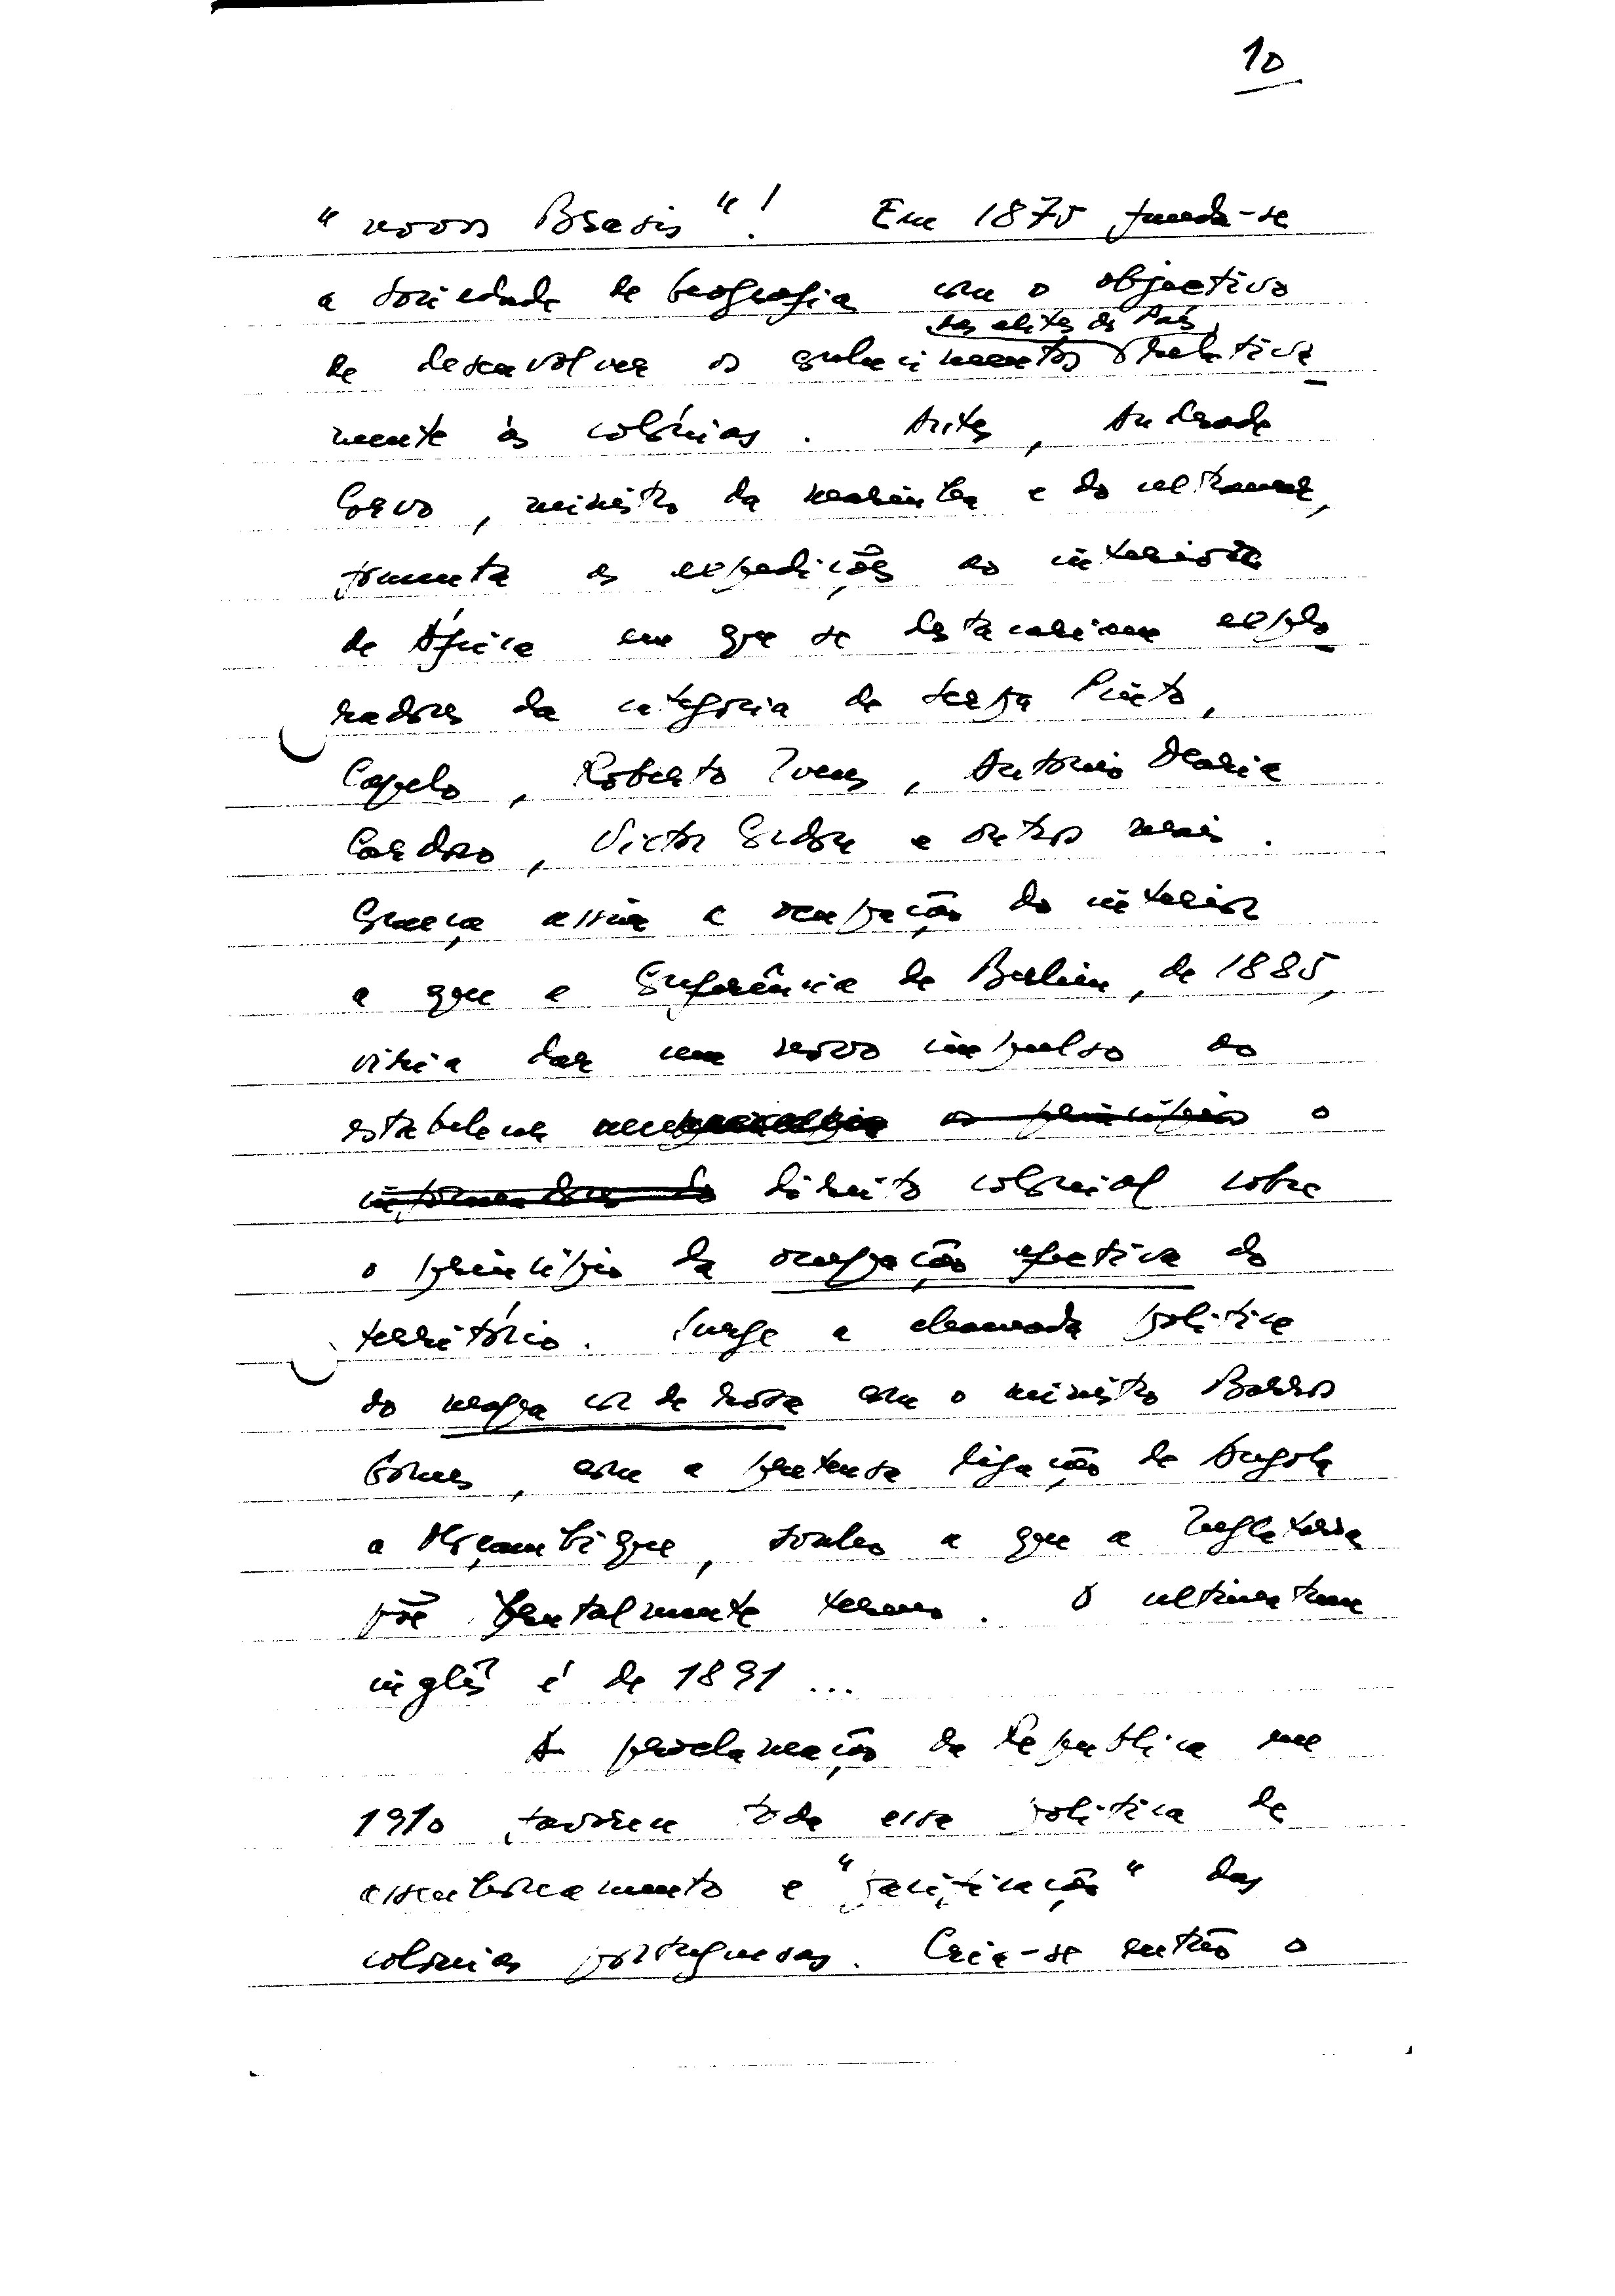 10
"novos Brasis"! Em 1875 funda-se
a Sociedade de Geografia com o objectivo
das elites do País,
de desenvolver os conhecimentos relativa
mente às colónias. Antes, Andrade
Corvo, ministro da marinha e do ultramar,
fomenta as expedições ao interior
de África em que se destacariam explo
radores da categoria de Serpa Pinto,
Capelo, Roberto Ivens, António Maria
Cardoso, Victor Cordon e outros mais.
Começa assim a ocupação do interior
a que a Conferência de Berlim, de 1885,
viria dar um novo impulso ao
estabelecer os princípios o
informadores do direito colonial sobre
o princípio da ocupação efectiva do
território. Surge a chamada política
do mapa cor de rosa com o ministro Barros
Gomes, com a pretensa ligação de Angola
a Moçambique, sonho a que a Inglaterra
põe brutalmente termo. O ultimatum
inglês é de 1891 ...
A proclamação da República em
1910 favorece toda essa política de
assenhoreamento e "pacificação" das
colónias portuguesas. Cria-se então o